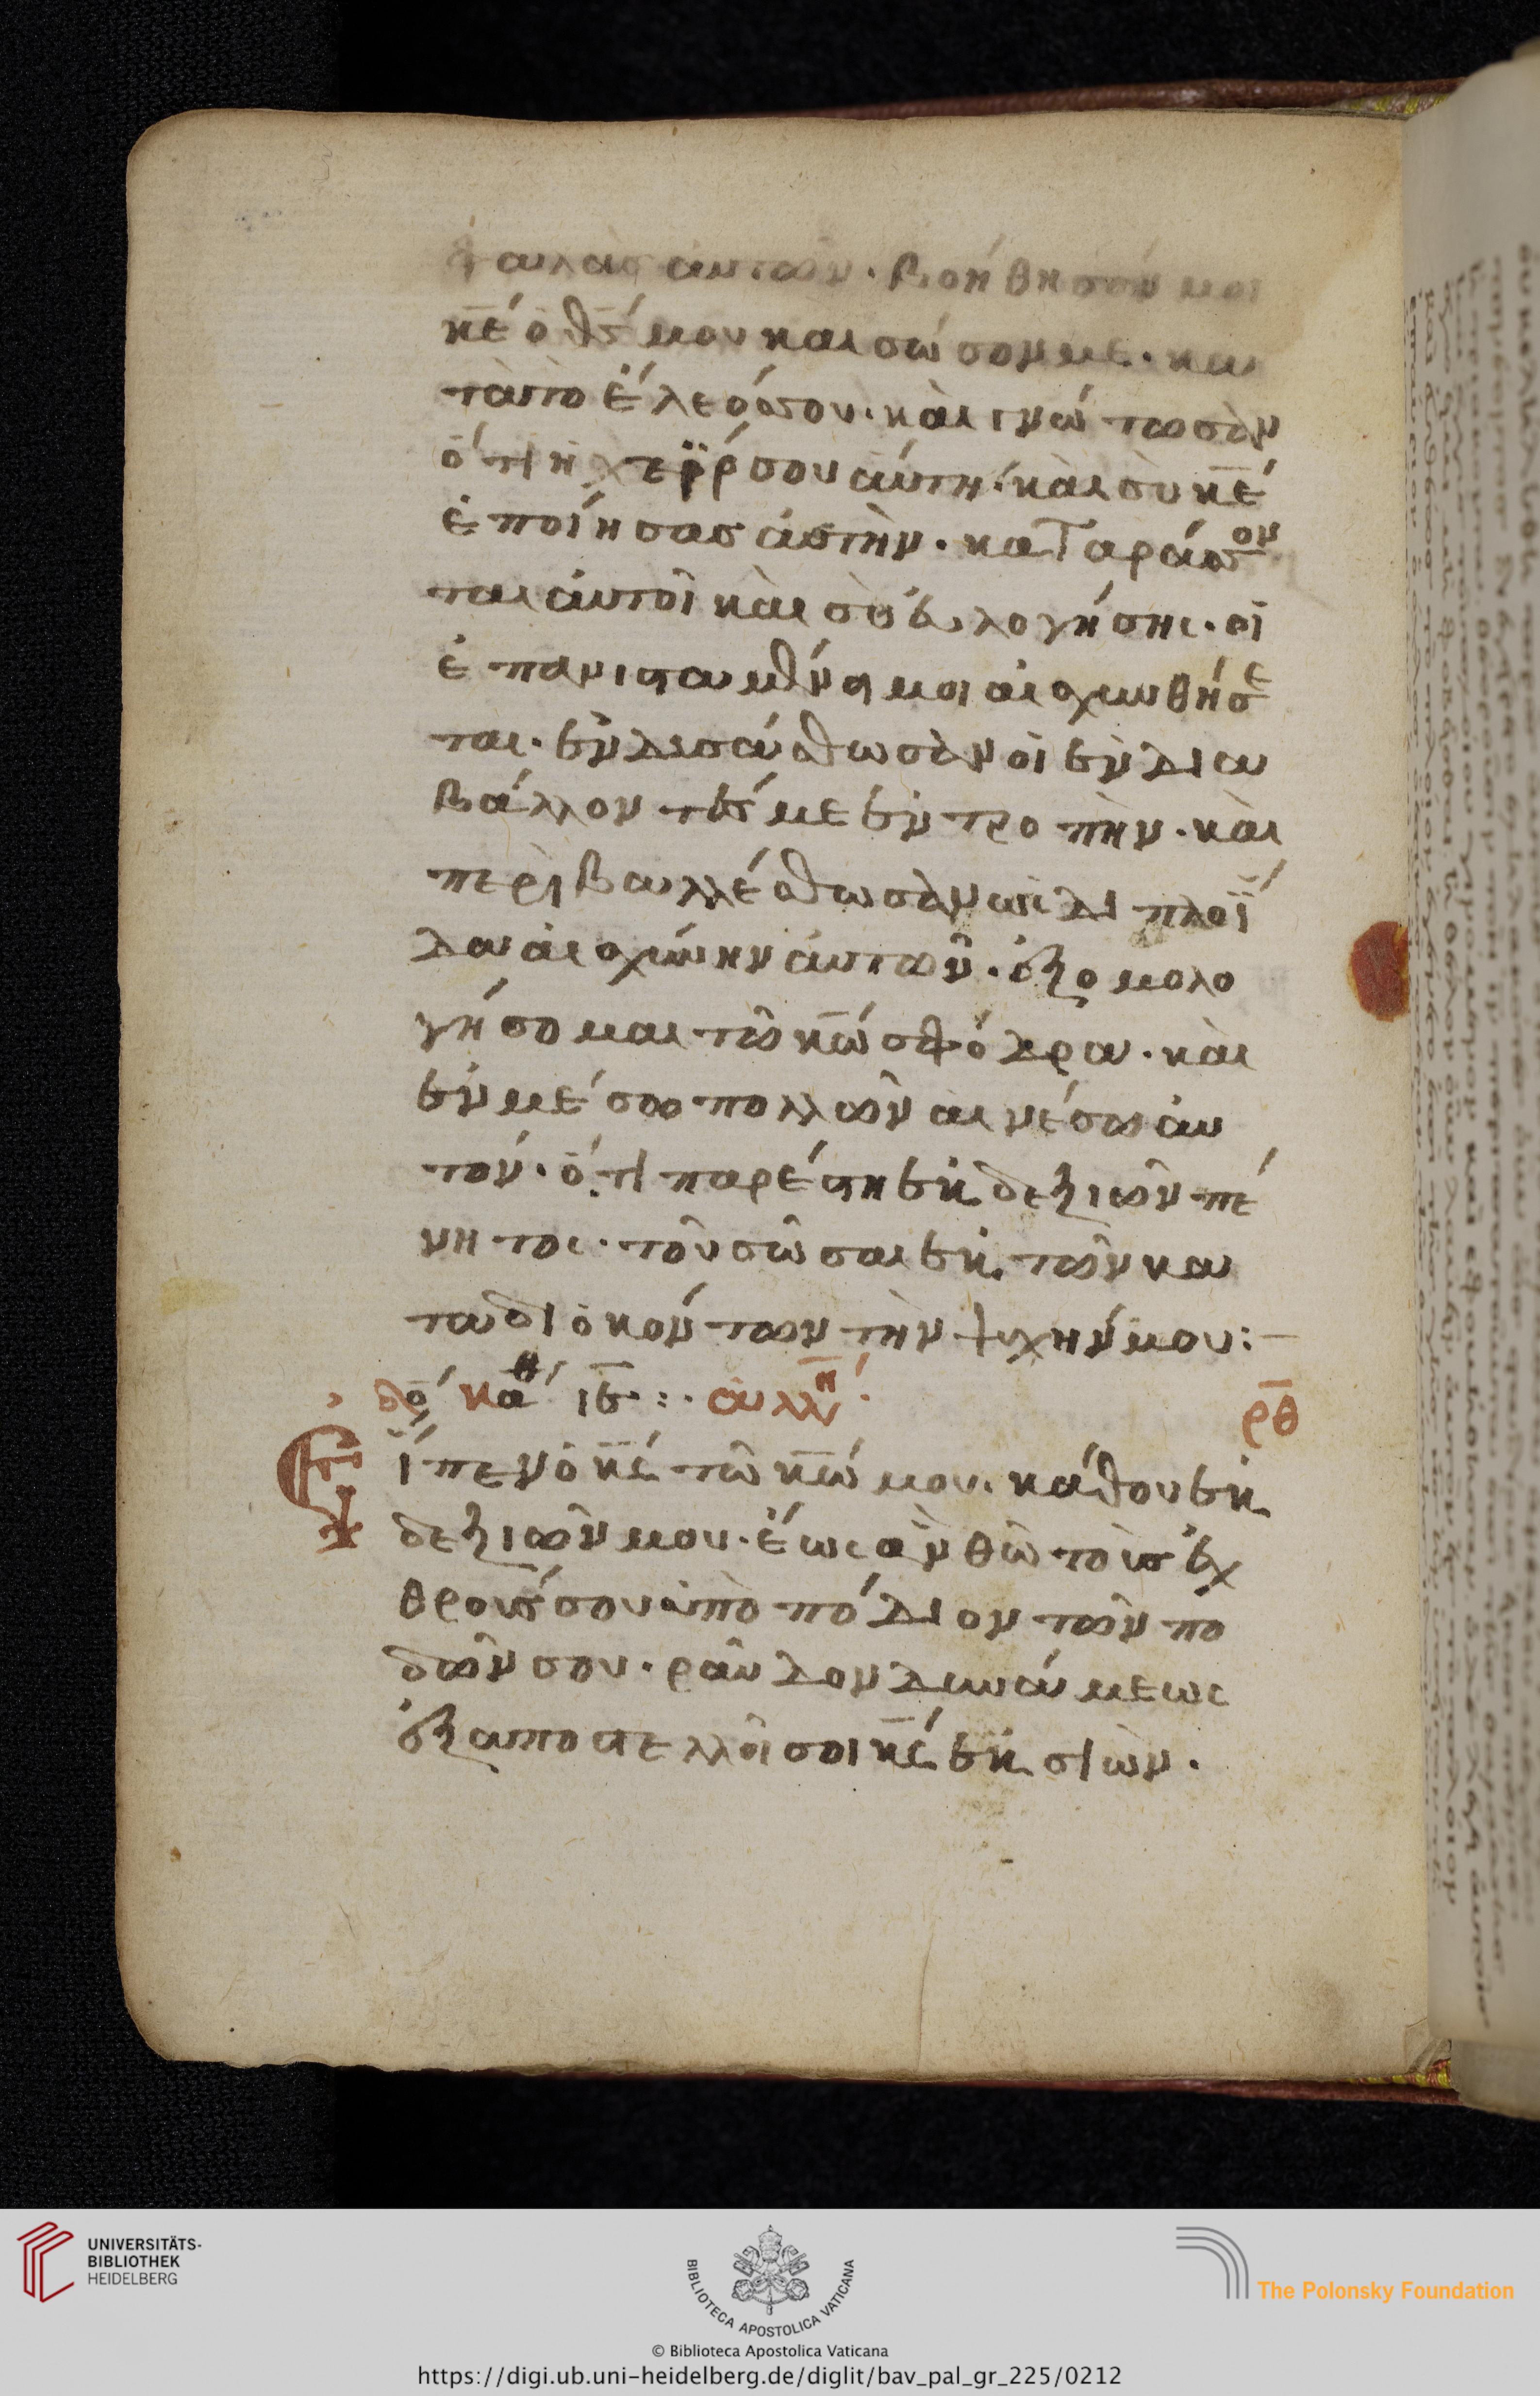 φαλὰσ ἀυτῶν. βοήθησόν μοι
κ̅έ ὁ θ̅σ́ μου και σώσον με. κα
τὰτὸ ἔλεόσ σου. κὰι γνώτωσὰν
ὅτι ἡ χεῖρ σου ἀύτη. κὰι σὺ κ̅έ
ἐποίησασ ἀυτὴν. καταράσον
ται ἀυτοὶ κὰι σὺ ἐυλογήσης. οἱ
ἐπανισταμένοι μοι αἰσχυνθήσε
ται. ἐνδισάσθωσὰν οἱ ἐνδια
βάλλοντέσ με ἐντροπὴν. κὰι
περιβαλλέσθωσὰν ὡς διπλοί
δα αἰσχύνην ἀυτῶν. ἐξομολο
γήσομαι τῶ κ̅ώ σφόδρα. κὰι
ἐν μέσω πολλῶν ἀινέσω ἀυ
τόν. ὅτι παρέστη ἐκ δεξιῶν πέ
νητος. τοῦ σῶσαι ἐκ τῶν κα
ταδιόκόντων τὴν ψυχήν μου:—
ιβ:· ἀλλη
ρ̅θ̅
Εἴπεν ὁ κ̅ς́ τῶ κ̅ώ μου. κάθου ἐκ
δεξιῶν μου. ἕως ἀν θῶ τοὺσ ἐχ
θρούσ σου ὑποπόδιον τῶν πο
δῶν σου. ράβδον δυνάμεως
ἐξαποστελλεῖ σοι κ̅ς́ ἐκ σιὼν.
UNIVERSITÄTS-
BIBLIOTHEK
HEIDELBERG
BIBLIOTECA APOSTOLICA VATICANA
The Polonsky Foundation
© Biblioteca Apostolica Vaticana
https://digi.ub.uni-heidelberg.de/diglit/bav_pal_gr_225/0212